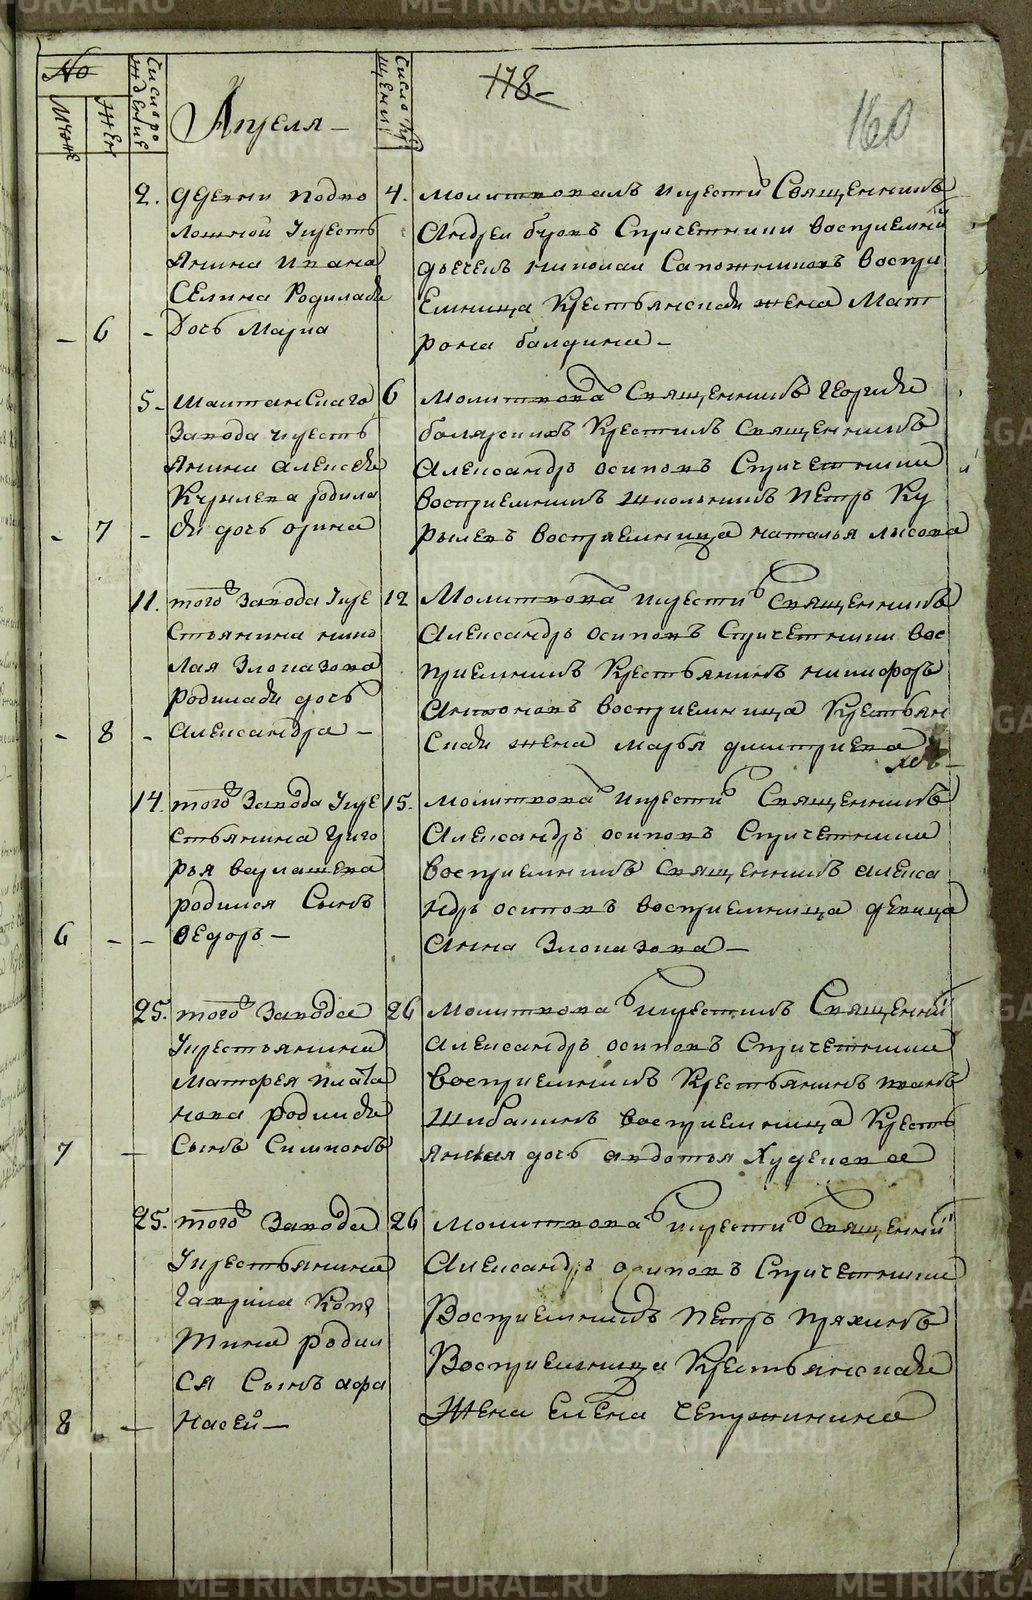 METRIKI.GASO-URAL.RU
№
Муже
Жен
Число рождение
Апреля
Число крещения
118
160
2. Деревни Подво
лошной крестъ
янина Ивана
Селина родилась
6 дочь Мария
4. Молитвовалъ и крестилъ Священникъ
Андреи Буовъ с причетники восприемни
дьячекъ Николаи Сапожниковъ воспри
емница крестьянская жена Мат
рона балдина
5. Шаитанскаго
завода крестъ
янина Алексея
Курылева родила
7 ся дочь Орина
6 Молитвовалъ Священникъ Георгии
боярскихъ крестилъ Священникъ
Александръ Осиповъ с причетники
восприемникъ школьникъ Петръ Ку
рылевъ восприемница Наталья Лысова
11. того завода кре
стьянина нико
лая Злоказова
родилась дочь
8 Александра
12 Молитвовалъ и крестилъ Священникъ
Александръ Осиповъ с причетники вос
приемникъ крестьянинъ никифоръ
Антоновъ восприемница крестьян
ская жена Марья дмитриева
14. того завода кре
стьянина Григо
рья варлашева
родился сынъ
6 Федоръ
15. Молитвовалъ и крестилъ Священникъ
Александръ Осиповъ с причетники
восприемникъ Священникъ Алекса
ндръ Осиповъ восприемница девица
Анна Злоказова
25. того завода
крестьянина
Матфея плата
нова родился
7 сынъ Симионъ
26 Молитвовалъ и крестилъ Священни
Александръ Осиповъ с причетники
восприемникъ крестьянинъ иванъ
Шибанинъ восприемница кресть
янская дочь Авдотья Худекова
25. того завода
крестьянина
Гаврила Копы
тина родил
ся сынъ Афа
8 насей
26 Молитвовалъ и крестилъ Священни
Александръ Осиповъ с причетники
Восприемникъ Петръ Пряхинъ
Восприемница крестьянская
жена Елена Чепужинина